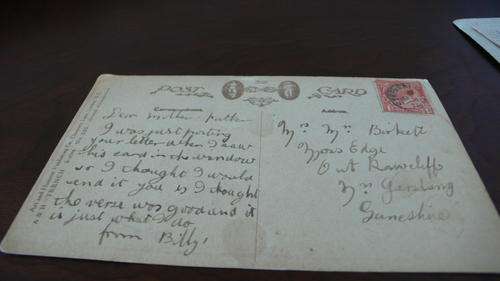 POST CARD
Correspondence Address
Dear Mother father
I was just posting
your letter when I saw
this card in the window
so I thought I would
send it you as I thought
the verse was good and it
is just what I do
from Billy.
Mr Mrs Birkett
Moss Edge
Out Rawcliffe
Nr Garstang
Lancashire